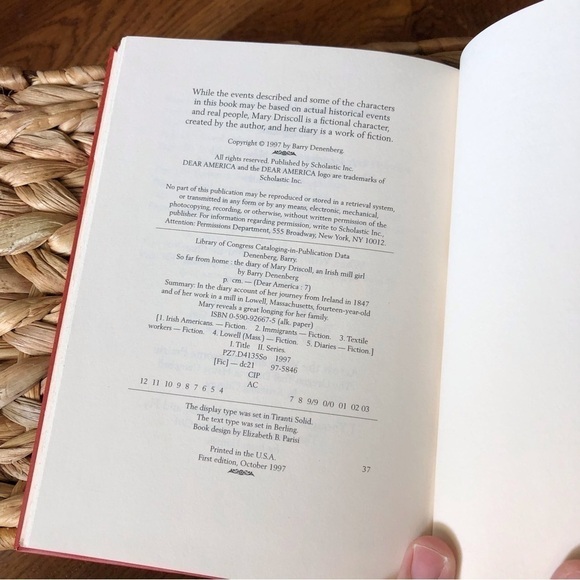 While the events described and some of the characters
in this book may be based on actual historical events
and real people, Mary Driscoll is a fictional character,
created by the author, and her diary is a work of fiction.
Copyright © 1997 by Barry Denenberg.
All rights reserved. Published by Scholastic Inc.
DEAR AMERICA and the DEAR AMERICA logo are trademarks of
Scholastic Inc.
No part of this publication may be reproduced or stored in a retrieval system,
or transmitted in any form or by any means, electronic, mechanical,
photocopying, recording, or otherwise, without written permission of the
publisher. For information regarding permission, write to Scholastic Inc.,
Attention: Permissions Department, 555 Broadway, New York, NY 10012.
Library of Congress Cataloging-in-Publication Data
Denenberg, Barry.
So far from home : the diary of Mary Driscoll, an Irish mill girl
by Barry Denenberg
p. cm. — (Dear America ; 7)
Summary: In the diary account of her journey from Ireland in 1847
and of her work in a mill in Lowell, Massachusetts, fourteen-year-old
Mary reveals a great longing for her family.
ISBN 0-590-92667-5 (alk. paper)
[1. Irish Americans. — Fiction. 2. Immigrants — Fiction. 3. Textile
workers — Fiction. 4. Lowell (Mass.) — Fiction. 5. Diaries — Fiction.]
I. Title II. Series.
PZ7.D4135So 1997
[Fic] — dc21 97-5846
CIP
AC
12 11 10 9 8 7 6 5 4 7 8 9/9 0/0 01 02 03
The display type was set in Tiranti Solid.
The text type was set in Berling.
Book design by Elizabeth B. Parisi
Printed in the U.S.A. 37
First edition, October 1997